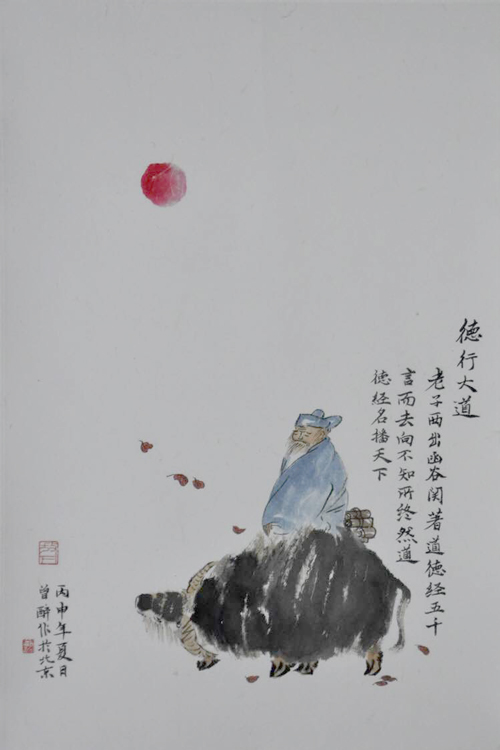 德行大道
老子西出函谷关著道德经五千
言而去向不知所终然道
德经名播天下
丙申年夏日
曾醉作於北京